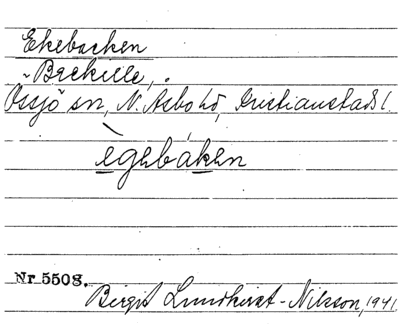 Ekebacken
Brekille,
Össjö sn, N. Åsbo hd, Kristianstads l.
egebáken
Nr 5508.
Birgit Lundkvist-Nilsson, 1941